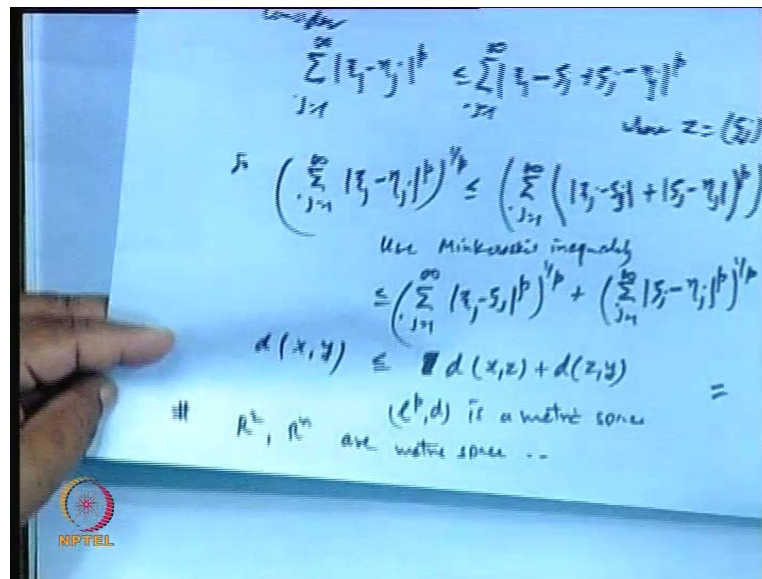 Consider
∑_{j=1}^{∞} |ξ_j-η_j|^p ≤ ∑_{j=1}^{∞} |ξ_j-ζ_j+ζ_j-η_j|^p
where z = (ζ_j)
So (∑_{j=1}^{∞} |ξ_j-η_j|^p)^{1/p} ≤ (∑_{j=1}^{∞} (|ξ_j-ζ_j|+|ζ_j-η_j|)^p)
Use Minkowski's inequality
≤ (∑_{j=1}^{∞} |ξ_j-ζ_j|^p)^{1/p} + (∑_{j=1}^{∞} |ζ_j-η_j|^p)^{1/p}
d(x,y) ≤ d(x,z) + d(z,y) =
(ℓ^p,d) is a metric space
# R^2, R^n are metric space ..
NPTEL